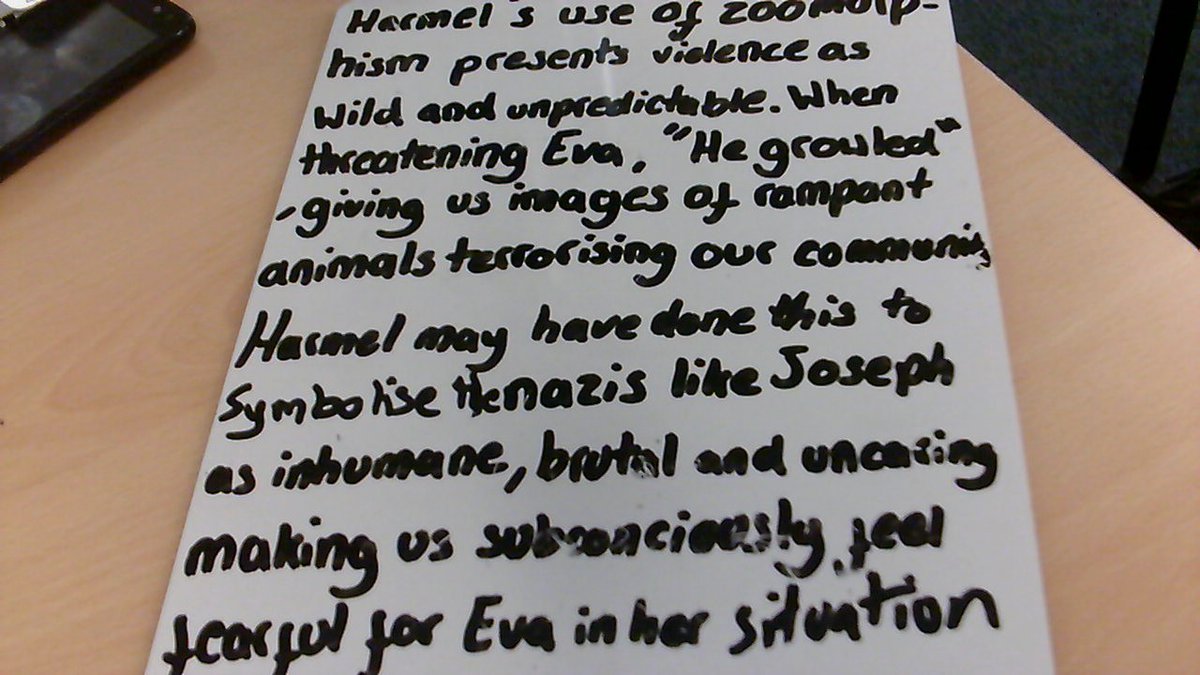 Harmel's use of zoomorp-
hism presents violence as
Wild and unpredictable. When
threatening Eva, "He growled"
-giving us images of rampant
animals terrorising our community
Harmel may have done this to
Symbolise the nazis like Joseph
as inhumane, brutal and uncaring
making us subconciously feel
fearful for Eva in her situation